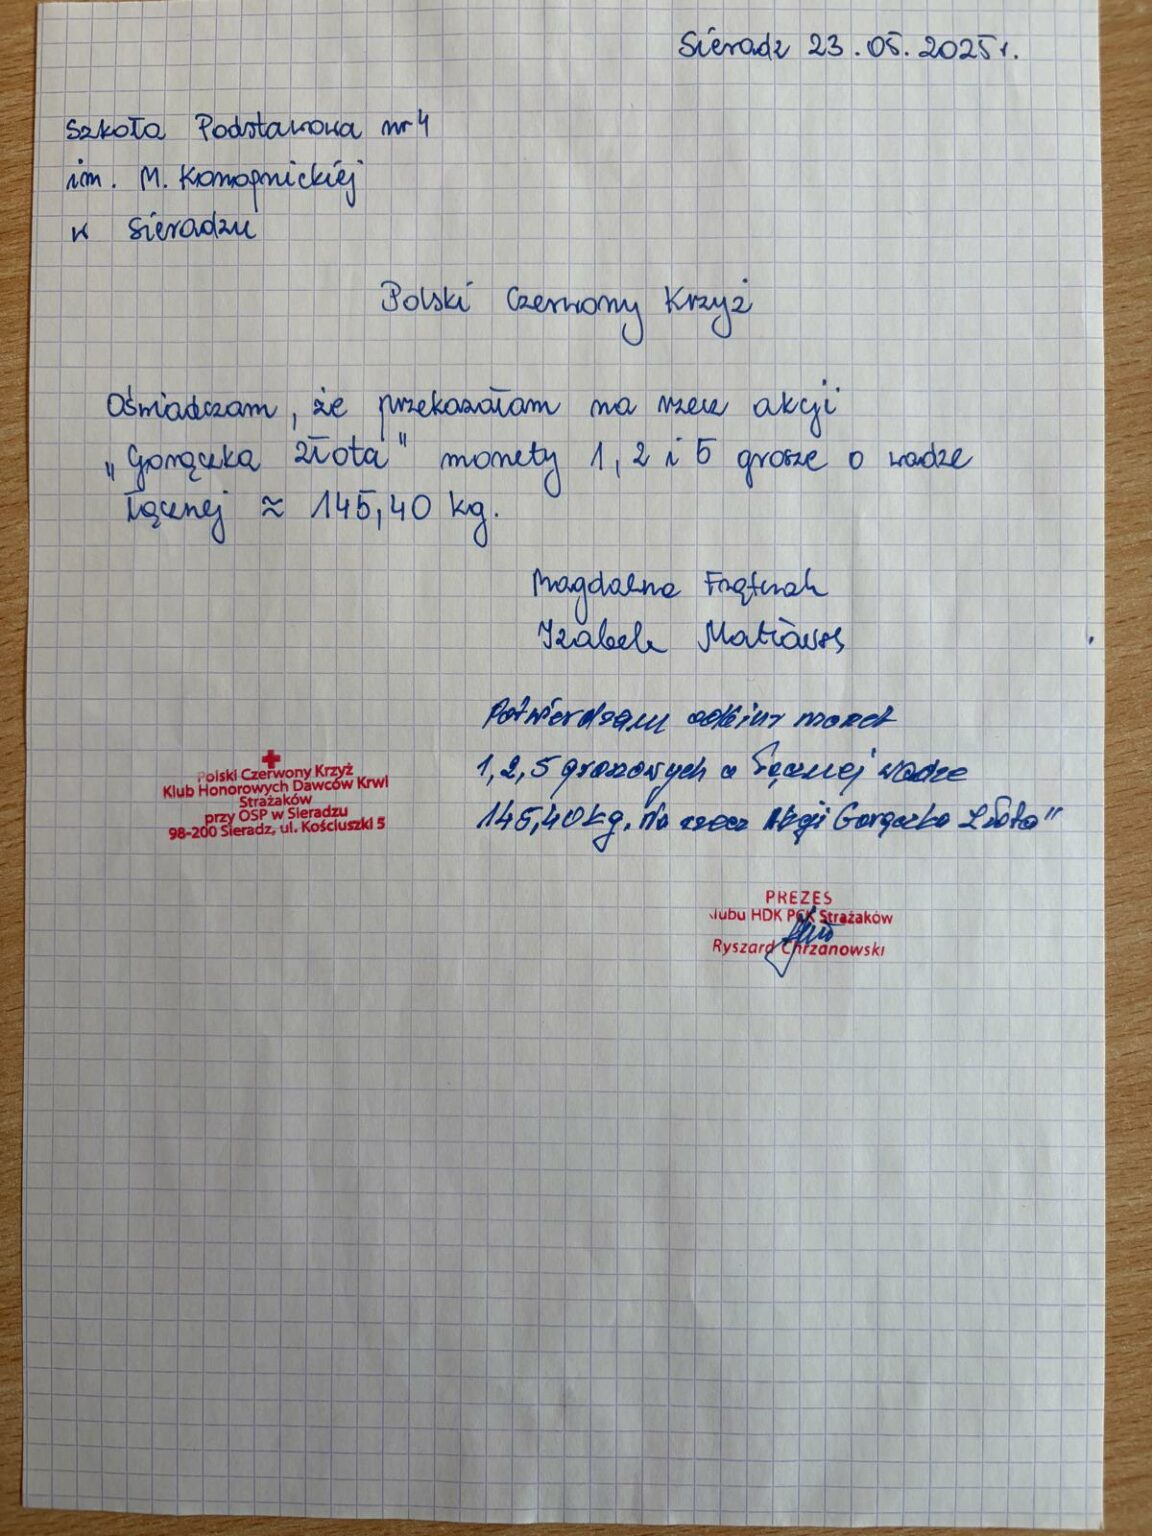 Sieradz 23.05.2025r.
Szkoła Podstawowa nr 4
im. M. Konopnickiej
w Sieradzu
Polski Czerwony Krzyż
Oświadczam, że przekazałam na rzecz akcji
„Gorączka złota" monety 1, 2 i 5 grosze o wadze
łącznej ≈ 145,40 kg.
Magdalena
Izabela
Potwierdzam odbiór monet
1,2,5 groszowych o łącznej wadze
145,40 kg. Na rzecz Akcji Gorączka Złota"
Polski Czerwony Krzyż
Klub Honorowych Dawców Krwi
Strażaków
przy OSP w Sieradzu
98-200 Sieradz, ul. Kościuszki 5
PREZES
Klubu HDK PCK Strażaków
Ryszard Chrzanowski